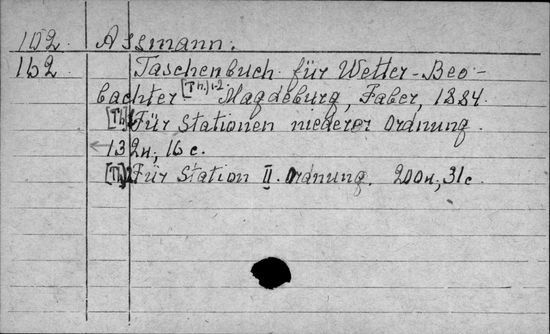 102 Assmann.
162 Taschenbuch für Wetter-Beo-
bachter [Th.] 1-2 Magdeburg, Faber, 1884.
[Th.] 1 Für Stationen niederer Ordnung.
132 n, 16 c.
[Th.] 2 Für Station II. Ordnung. 200 n, 31 c.